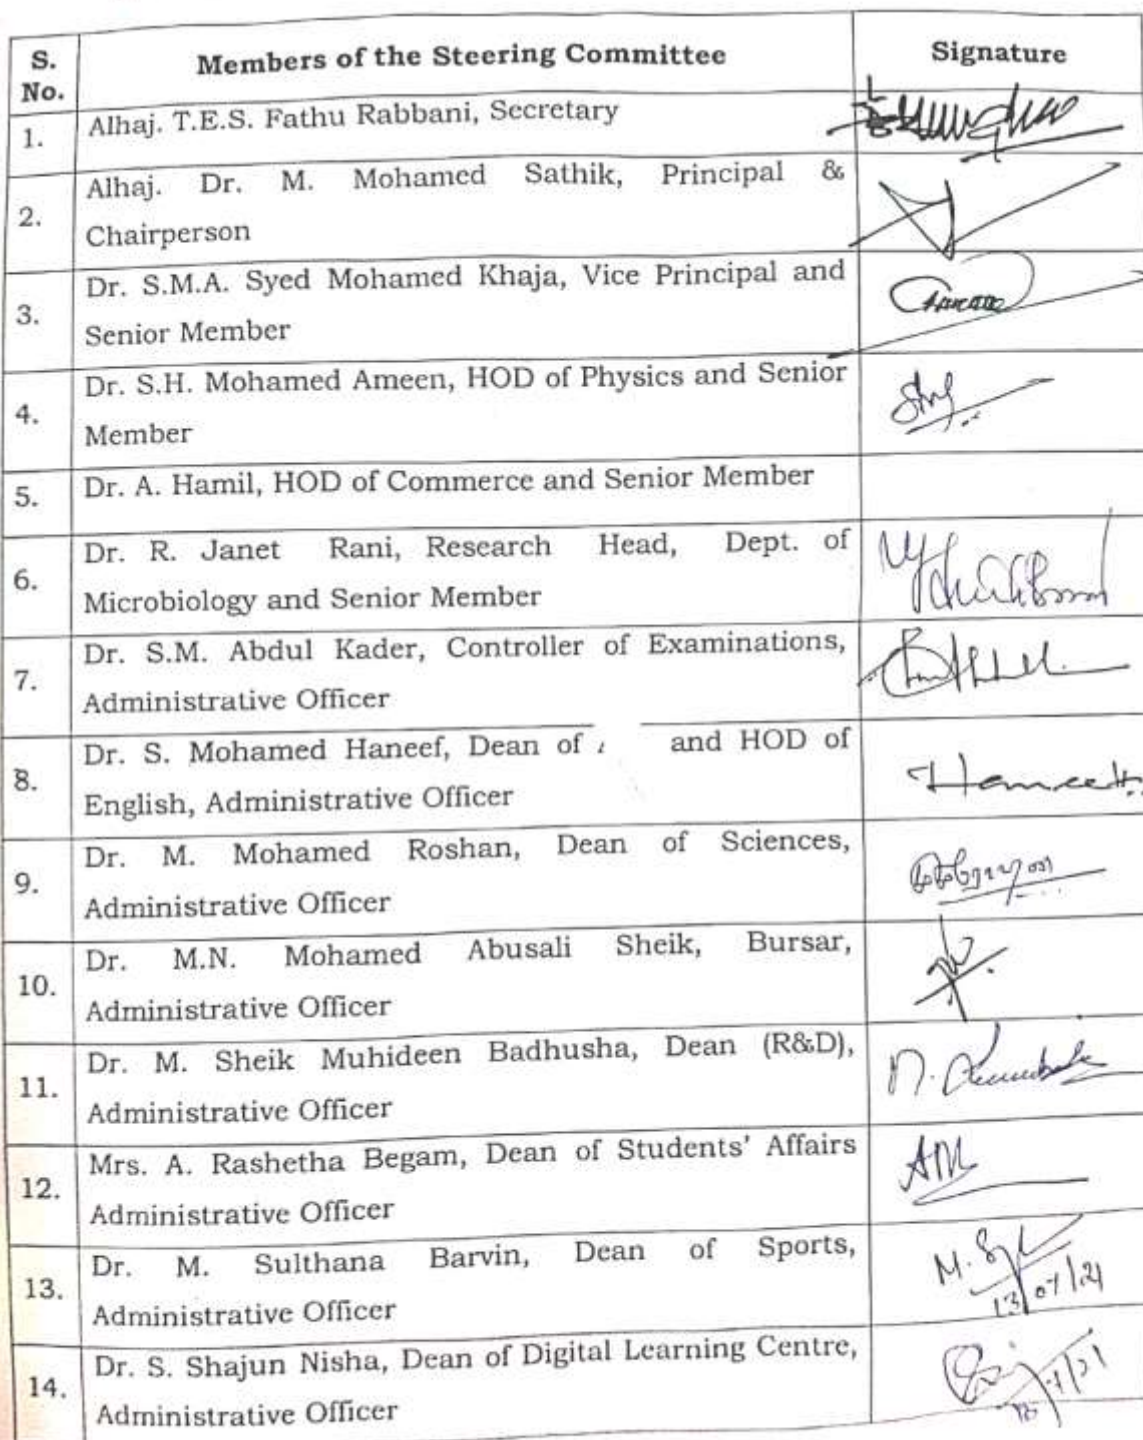 S. No. Members of the Steering Committee Signature
1. Alhaj. T.E.S. Fathu Rabbani, Secretary
2. Alhaj. Dr. M. Mohamed Sathik, Principal &
Chairperson
3. Dr. S.M.A. Syed Mohamed Khaja, Vice Principal and
Senior Member
4. Dr. S.H. Mohamed Ameen, HOD of Physics and Senior
Member
5. Dr. A. Hamil, HOD of Commerce and Senior Member
6. Dr. R. Janet Rani, Research Head, Dept. of
Microbiology and Senior Member
7. Dr. S.M. Abdul Kader, Controller of Examinations,
Administrative Officer
8. Dr. S. Mohamed Haneef, Dean of and HOD of
English, Administrative Officer
9. Dr. M. Mohamed Roshan, Dean of Sciences,
Administrative Officer
10. Dr. M.N. Mohamed Abusali Sheik, Bursar,
Administrative Officer
11. Dr. M. Sheik Muhideen Badhusha, Dean (R&D),
Administrative Officer
12. Mrs. A. Rashetha Begam, Dean of Students' Affairs
Administrative Officer
13. Dr. M. Sulthana Barvin, Dean of Sports,
Administrative Officer 13/07/21
14. Dr. S. Shajun Nisha, Dean of Digital Learning Centre,
Administrative Officer